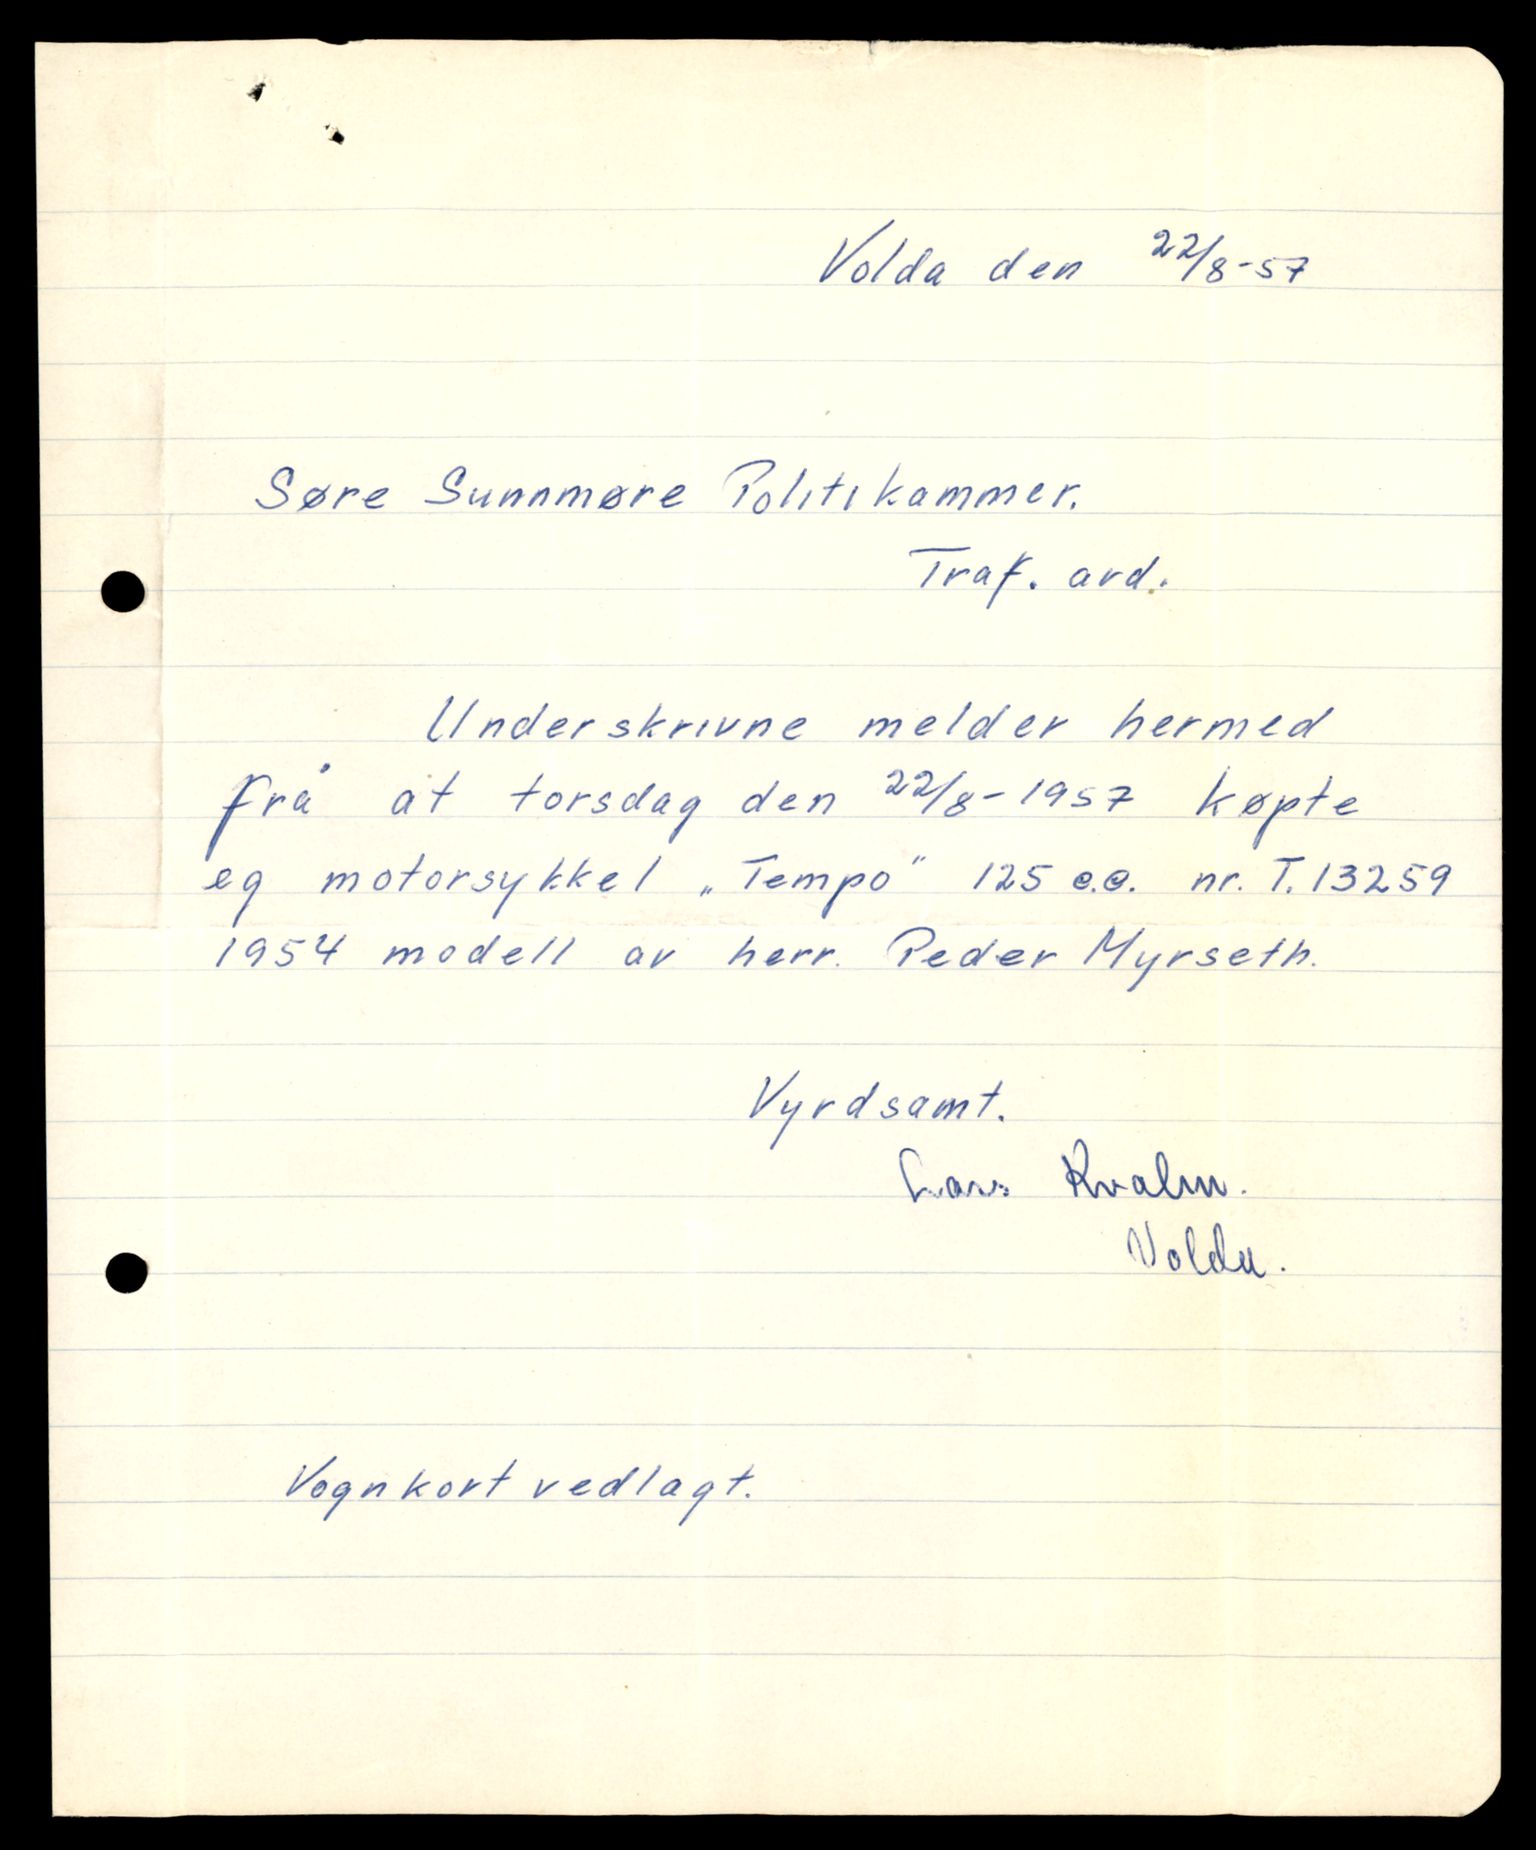 Volda den 22/8-57
Søre Sunnmøre Politikammer.
Traf. avd.
Underskrivne melder hermed
frå at torsdag den 22/8-1957 køpte
eg motorsykkel „Tempo" 125 c.c. nr. T.13259
1954 modell av herr. Peder Myrseth.
Vyrdsamt.
Lars
Volda.
Vognkort vedlagt.